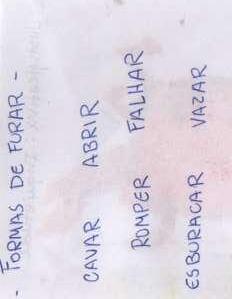 - FORMAS DE FURAR -
CAVAR ABRIR
ROMPER FALHAR
ESBURACAR VAZAR